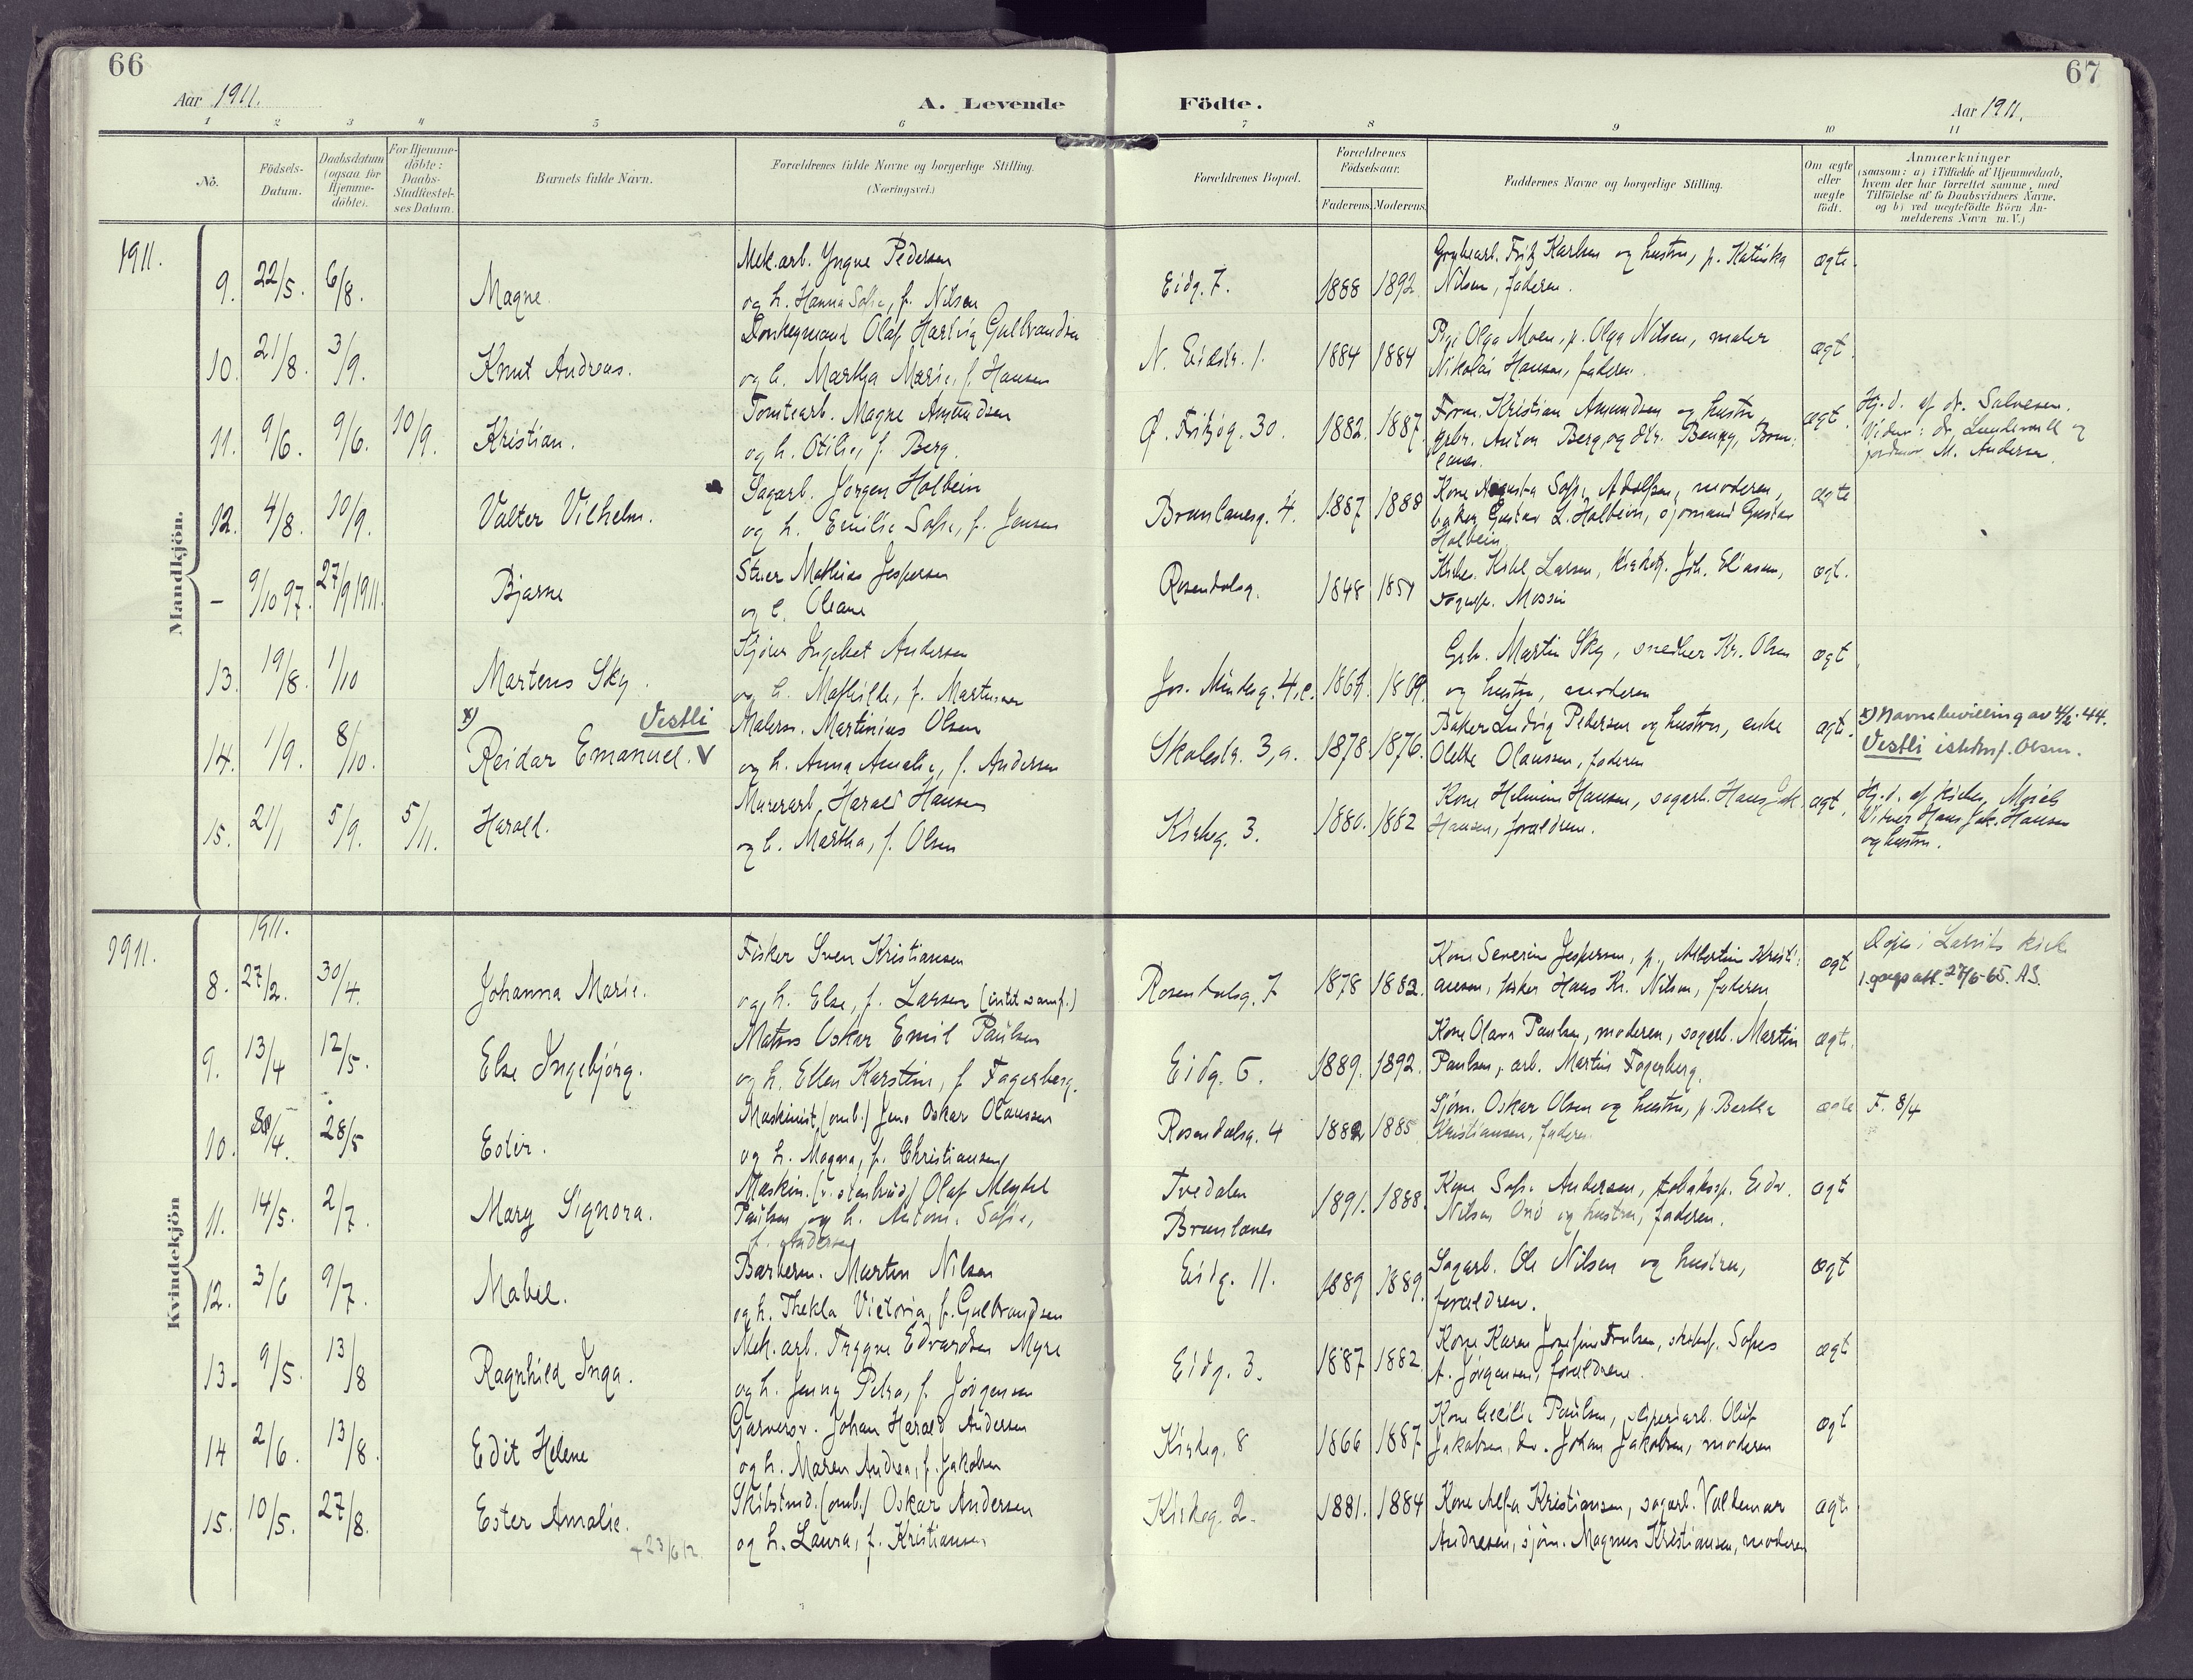 66
67
Aar 1911.
A. Levende
Födte.
Aar 1911.
1 2 3 4 5 6 7 8 9 10 11
No.
Födsels-
Datum.
Daabsdatum
(ogsaa for
Hjemme-
döbte).
For Hjemme-
döbte:
Daabs-
Stadfæstel-
ses Datum.
Barnets fulde Navn.
Forældrenes fulde Navne og borgerlige Stilling.
(Næringsvei.)
Forældrenes Bopæl.
Forældrenes
Födselsaar.
Faderens. Moderens.
Faddernes Navne og borgerlige Stilling.
Om ægte
eller
uægte
födt.
Anmærkninger
(saasom: a) i Tilfælde af Hjemmedaab,
hvem der har forrettet samme, med
Tilföielse af to Daabsvidners Navne,
og b) ved uægtefödte Börn An-
melderens Navn m. V.)
Mandkjön.
1911.
9. 22/5. 6/8. Magne.
Mek.arb. Yngve Pedersen
og h. Hanna Sofie, f. Nilsen
Eidg. 7. 1888 1892
Karlsen og hustru, p. Katinka
Nilsen, faderen.
ægte.
10. 21/8. 3/9. Knut Andreas.
Olaf Hartvig Gulbrandsen
og h. Martha Marie, f. Hansen
N. Eidstr. 1. 1884 1884
Pige Olga Moen, p. Olga Nilsen, maler
Nikolai Hansen, faderen.
ægt.
11. 9/6. 9/6. 10/9. Kristian.
Tomtearb. Magne Amundsen
og h. Otilie, f. Berg.
Ø. Fritzög. 30. 1882. 1887.
Form. Kristian Amundsen og hustru,
gbr. Anton Berg, og dtr. Benny, Brun-
lanes.
ægt.
Hj.d. af dr. Salvesen.
Vidner: dr. og
jordmor M. Andersen.
12. 4/8. 10/9. Valter Vilhelm.
Sagarb. Jörgen Holbein
og h. Emilie Sofie, f. Jensen
Brunlanesg. 4. 1887 1888
Kone Augusta Sofie Adolfsen, moderen,
baker Gustav L. Holbein, sjömand Gustav
Holbein.
ægte
– 9/10 97. 27/9 1911. Bjarne
Stuer Mathias Jespersen
og h. Oleane
Rosendalsg. 1848 1854
Larsen, Joh. Eliasen,
sognepr. Mossin
ægt.
13. 19/8. 1/10 Martens Sky.
Kjörer Ingebret Andersen
og h. Mathilde, f. Martinsen
Jos. Mindeg. 4,c. 1867. 1869.
Gbr. Martin Sky, snedker Kr. Olsen
og hustru, moderen
ægt
14. 1/9. 8/10. x) Reidar Emanuel. V Vestli
Malerm. Martinius Olsen
og h. Anna Amalie, f. Andersen
Skolestr. 3,a. 1878. 1876.
Baker Ludvig Pedersen og hustru, enke
Olette Olaussen, faderen
ægt.
x) Navnebevilling av 4/2-44.
Vestli istedenf. Olsen.
15. 21/1 5/9. 5/11. Harald.
Murerarb. Harald Hansen
og h. Martha, f. Olsen
Kirkeg. 3. 1880. 1882
Kone Helmine Hansen, sagarb. Hans Jak.
Hansen, forældrene.
ægt.
Hj.d. af
Vidner Hans Jak. Hansen
og hustru.
Kvindekjön
1911.
1911.
8. 27/2. 30/4. Johanna Marie.
Fisker Sven Kristiansen
og h. Else, f. Larsen
Rosendalsg. 7 1878 1882.
Kone Severine Jespersen, p. Albertine Kristi-
ansen, fisker Hans Kr. Nilsen, faderen
ægt
i Larviks kirke
27/5-65. AS.
9. 13/4 12/5. Else Ingebjörg.
Matros Oskar Emil Paulsen
og h. Ellen Karstine, f. Fagerberg.
Eidg. 5. 1889. 1892.
Kone Olava Paulsen, moderen, sagarb. Martin
Paulsen, arb. Martin Fagerberg.
ægte.
10. 28/5 Ester.
Maskinist (omb.) Jens Oskar Olaussen
og h. Magna, f. Christiansen
Rosendalsg. 4 1882 1885
Sjöm. Oskar Olsen og hustru, p. Berta
Kristiansen, faderen.
ægte
F. 8/4
11. 14/5. 2/7. Mary Signora.
Maskin. (v. stenbrud) Olaf Meydel
Paulsen og h. Antonie Sofie,
f. Andersen
Tvedalen
Brunlanes
1891. 1888.
Kone Sofie Andersen,
Nilsen og hustru, faderen.
ægt
12. 3/6 9/7. Mabel.
Barberm. Martin Nilsen
og h. Thekla Victoria, f. Gulbrandsen
Eidg. 11. 1889 1889.
Sagarb. Ole Nilsen og hustru,
forældrene.
ægt
13. 9/5. 13/8 Ragnhild Inga.
Mek. arb. Trygve Edvardsen Myre
og h. Jenny Petra, f. Jörgensen
Eidg. 3. 1887 1882
Kone Karen Josefine
A. Jörgensen, forældrene.
ægt
14 2/6. 13/8. Edit Helene
Johan Harald Andersen
og h. Maren Andrea, f. Jakobsen
Kirkeg. 8 1866 1887
Kone Cecilie Paulsen, sliperiarb. Oluf
Jakobsen, Johan Jakobsen, moderen
ægt
15. 10/5. 27/8. Ester Amalie.
+ 23/6 12.
Skibstmd. (omb.) Oskar Andersen
og h. Laura, f. Kristiansen
Kirkeg. 2. 1881. 1884
Kone Kristiansen, sagarb. Valdemar
Andresen, sjöm. Magnus Kristiansen, moderen
ægt.